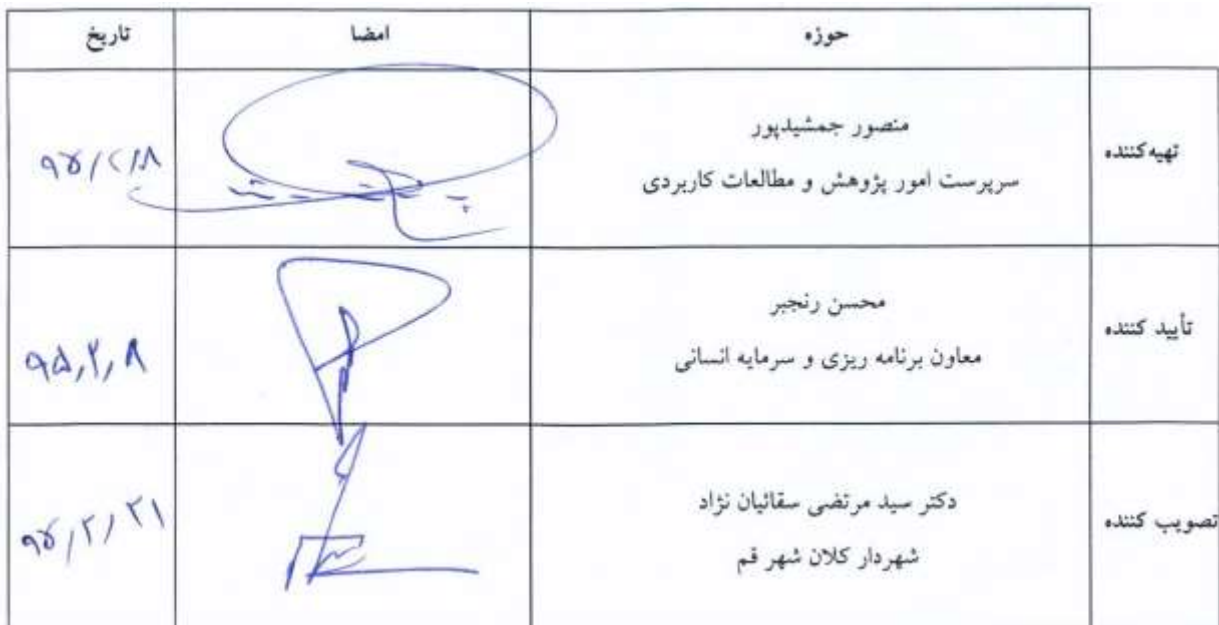 حوزه امضا تاریخ
تهیه‌کننده
منصور جمشیدپور
سرپرست امور پژوهش و مطالعات کاربردی
۹۵/۲/۸
تأیید کننده
محسن رنجبر
معاون برنامه ریزی و سرمایه انسانی
۹۵/۲/۸
تصویب کننده
دکتر سید مرتضی سقائیان نژاد
شهردار کلان شهر قم
۹۵/۲/۲۱